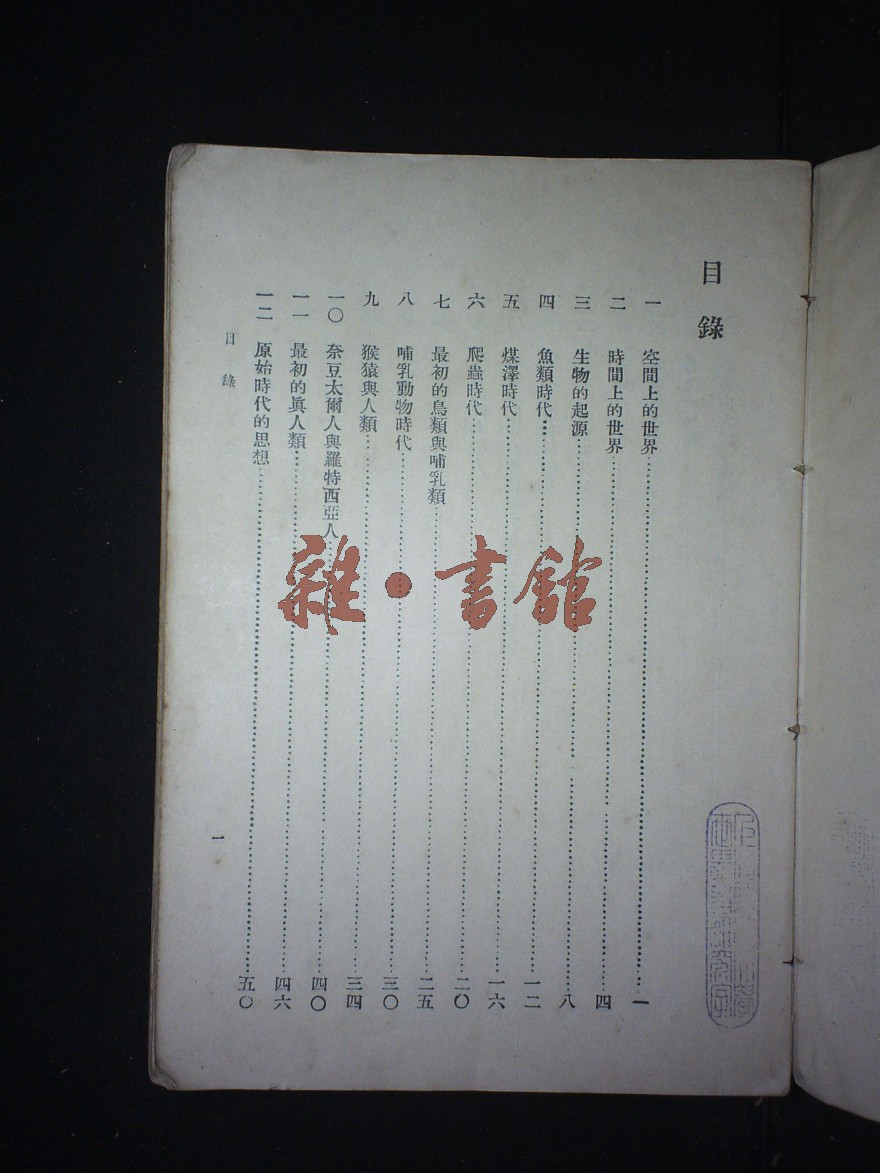 目錄
一 空間上的世界……一
二 時間上的世界……四
三 生物的起源……八
四 魚類時代……一二
五 煤澤時代……一六
六 爬蟲時代……二〇
七 最初的鳥類與哺乳類……二五
八 哺乳動物時代……三〇
九 猴猿與人類……三四
一〇 奈豆太爾人與羅特西亞人……四〇
一一 最初的眞人類……四六
一二 原始時代的思想……五〇
目錄
一
雜·書館